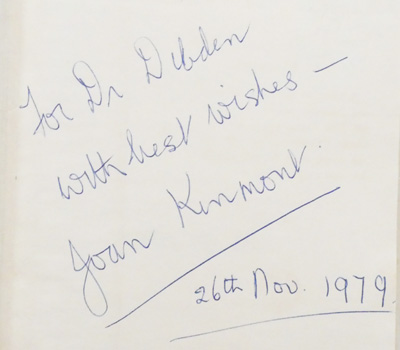 For Dr Dibden
with best wishes —
Joan Kinmont.
26th Nov. 1979.